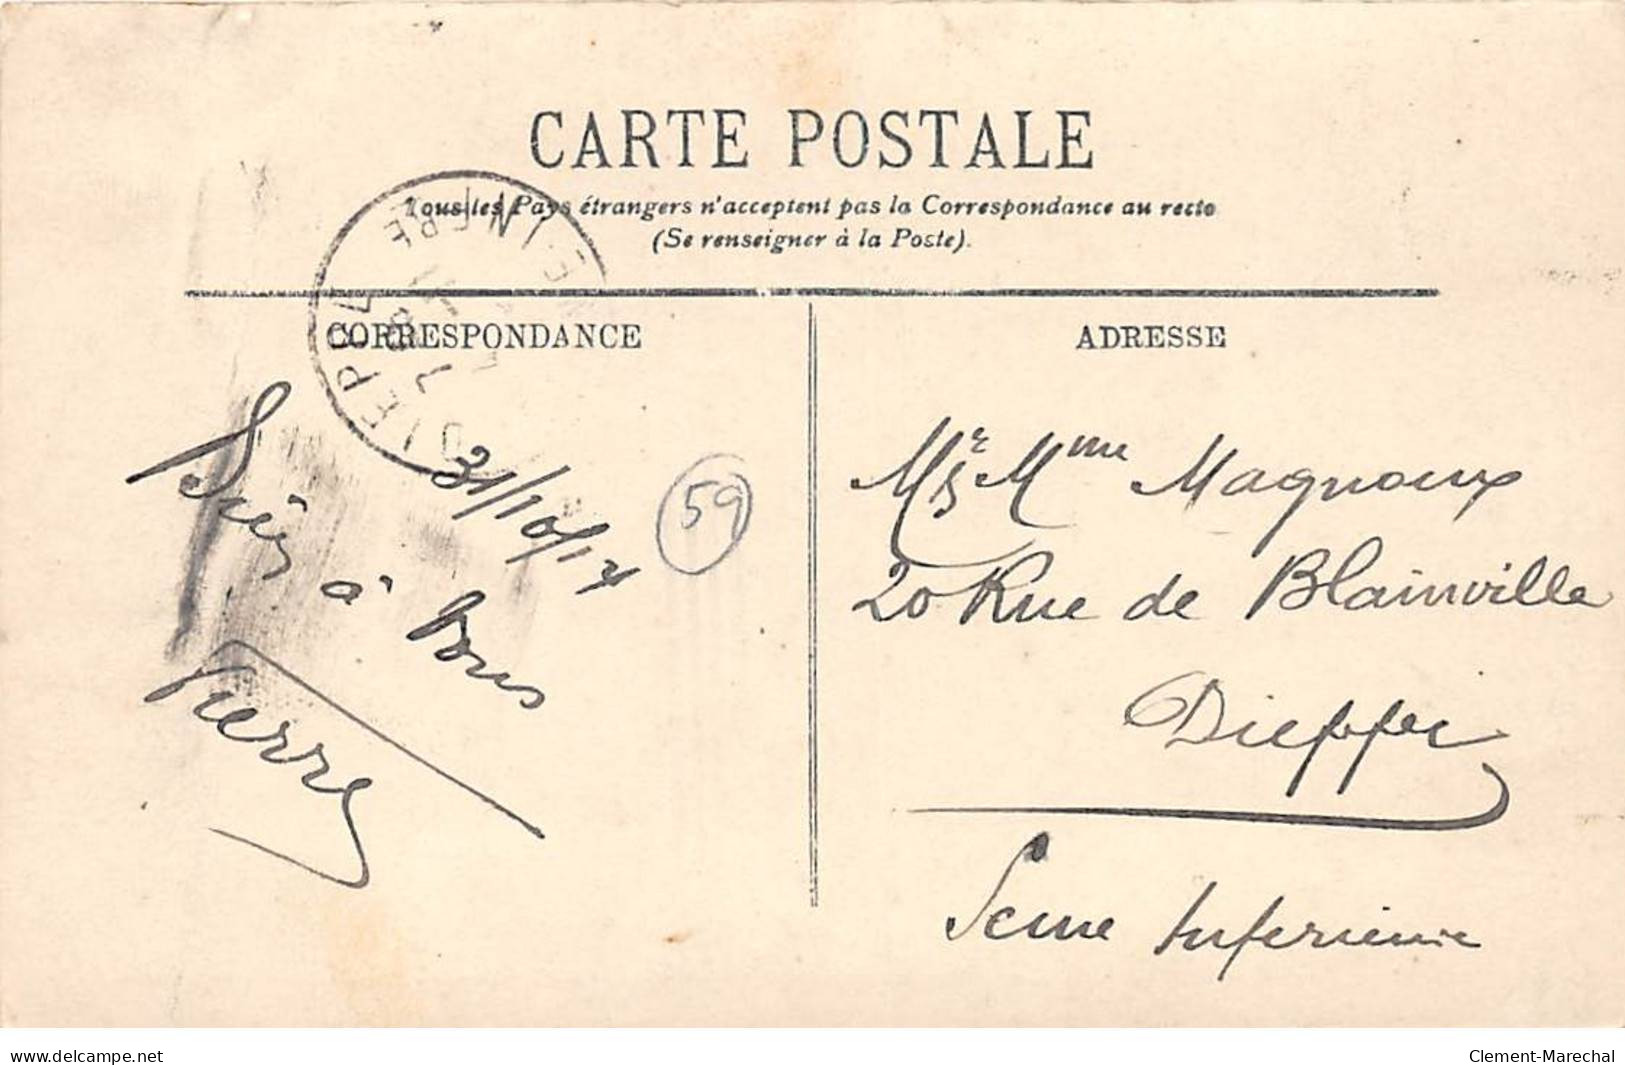 CARTE POSTALE
Tous les Pays étrangers n'acceptent pas la Correspondance au recto
(Se renseigner à la Poste).
CORRESPONDANCE
31/10/17
à vous
Pierre
59
ADRESSE
Mr & Mme Magnoux
20 Rue de Blainville
Dieppe
Seine Inferieure
delcampe.net
Clement-Marechal